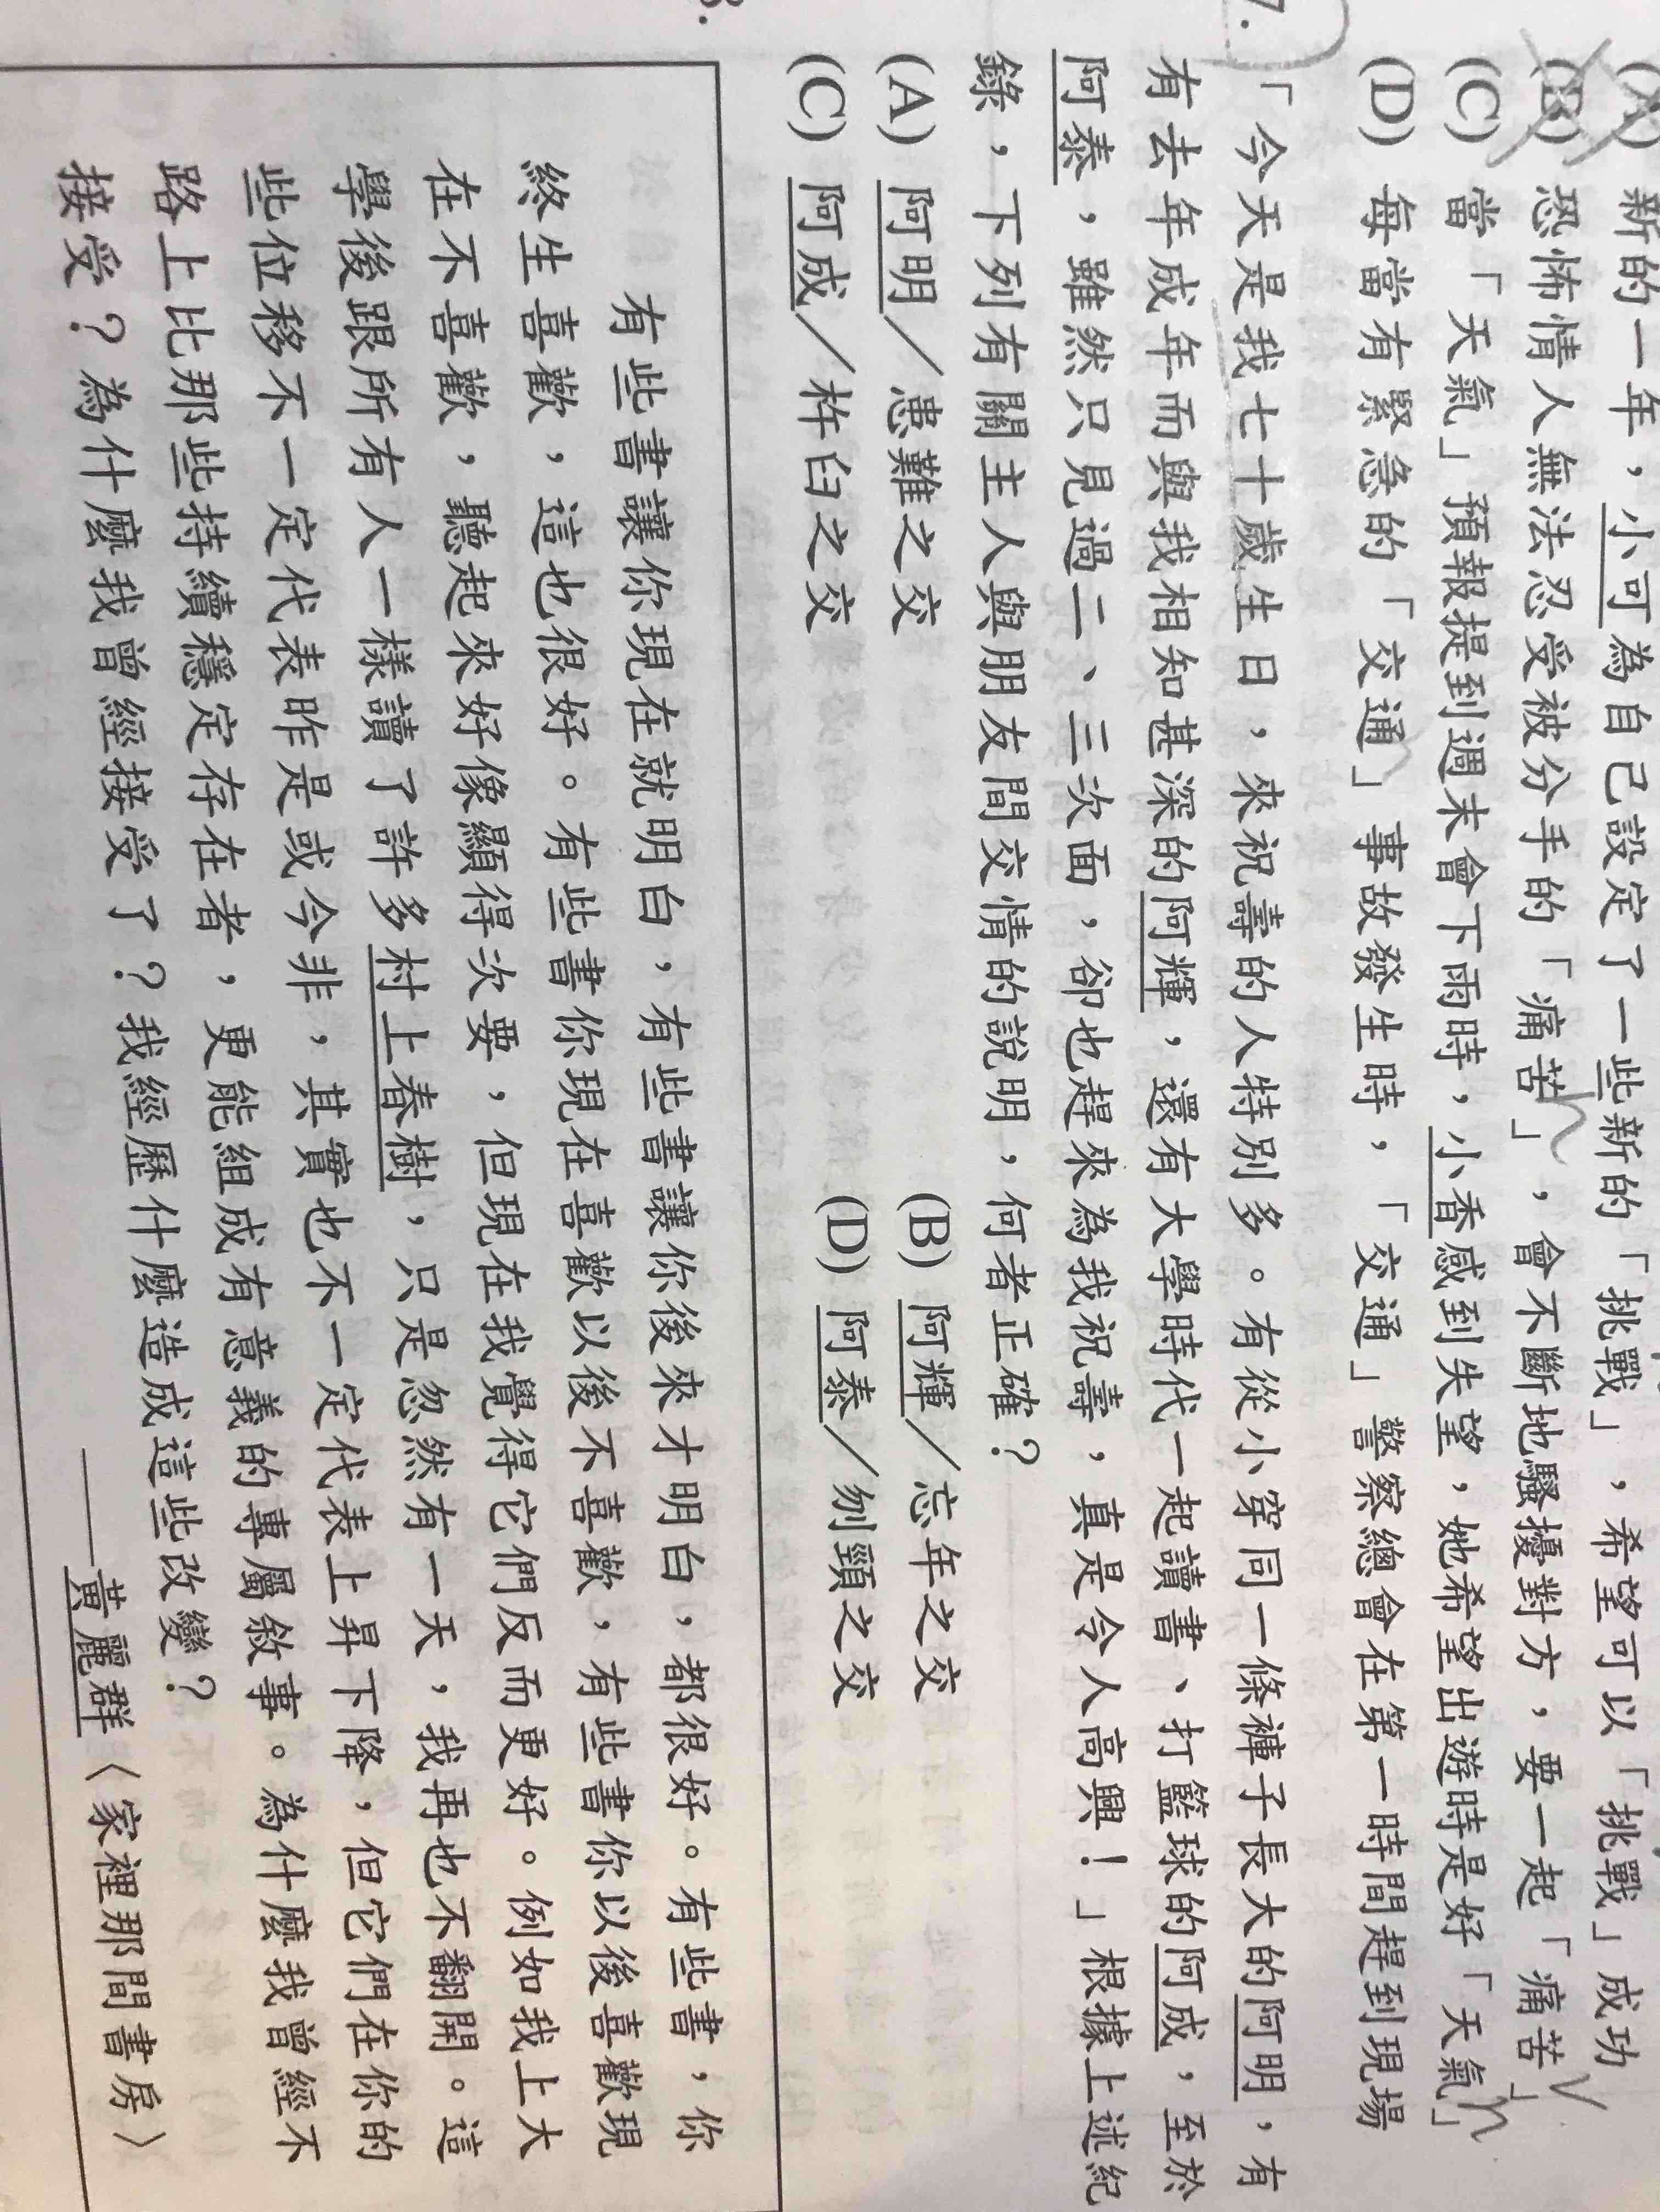 (A) 新的一年，小可為自己設定了一些新的「挑戰」，希望可以「挑戰」成功
(B) 恐怖情人無法忍受被分手的「痛苦」，會不斷地騷擾對方，要一起「痛苦」
(C) 當「天氣」預報提到週末會下雨時，小香感到失望，她希望出遊時是好「天氣」
(D) 每當有緊急的「交通」事故發生時，「交通」警察總會在第一時間趕到現場
7.「今天是我七十歲生日，來祝壽的人特別多。有從小穿同一條褲子長大的阿明，有
有去年成年而與我相知甚深的阿輝，還有大學時代一起讀書、打籃球的阿成，至於
阿泰，雖然只見過二、三次面，卻也趕來為我祝壽，真是令人高興！」根據上述紀
錄，下列有關主人與朋友間交情的說明，何者正確？
(A) 阿明／患難之交 (B) 阿輝／忘年之交
(C) 阿成／杵臼之交 (D) 阿泰／刎頸之交
8.
有些書讓你現在就明白，有些書讓你後來才明白，都很好。有些書，你
終生喜歡，這也很好。有些書你現在喜歡以後不喜歡，有些書你以後喜歡現
在不喜歡，聽起來好像顯得次要，但現在我覺得它們反而更好。例如我上大
學後跟所有人一樣讀了許多村上春樹，只是忽然有一天，我再也不翻開。這
些位移不一定代表昨是或今非，其實也不一定代表上昇下降，但它們在你的
路上比那些持續穩定存在者，更能組成有意義的專屬敘事。為什麼我曾經不
接受？為什麼我曾經接受了？我經歷什麼造成這些改變？
——黃麗群〈家裡那間書房〉